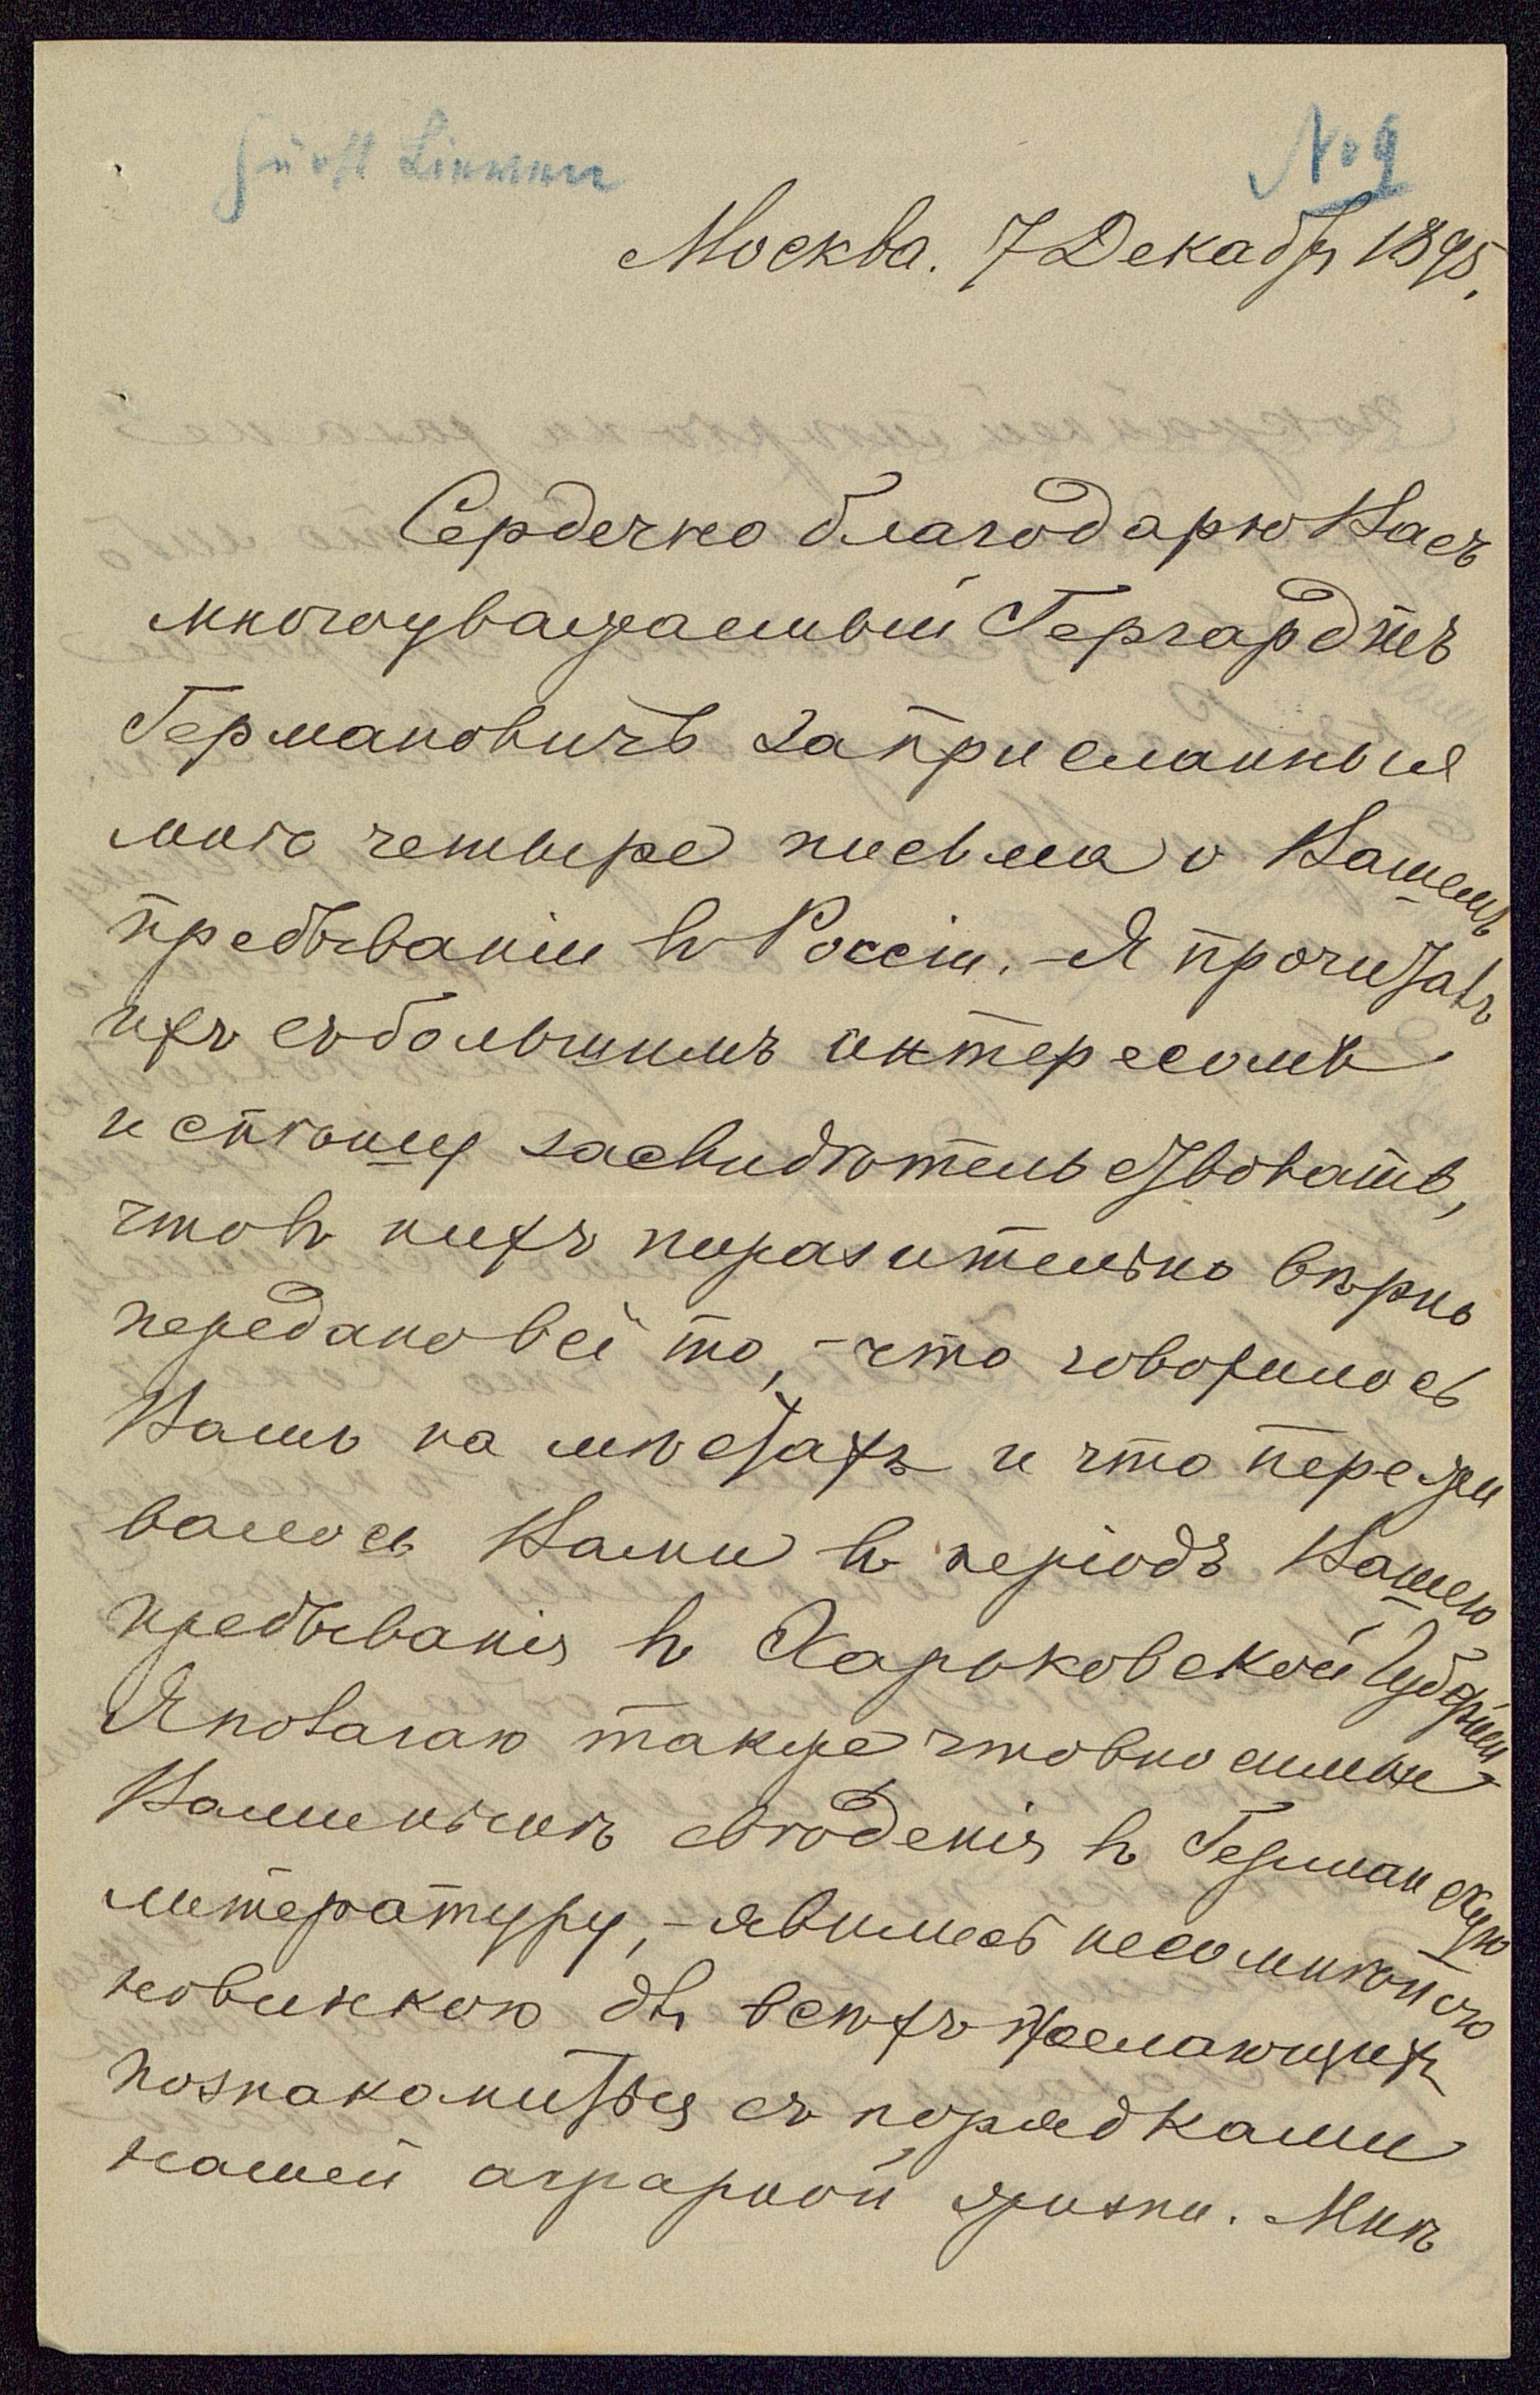 Fürst Lieven
№ 9
Москва. 7 Декабря 1895.
Сердечно благодарю Васъ
многоуважаемый Гергардтъ
Германовичъ за присланныя
мнѣ четыре письма о Вашемъ
пребываніи въ Россіи. – Я прочиталъ
ихъ съ большимъ интересомъ
и спѣшу засвидѣтельствовать,
что въ нихъ поразительно вѣрно
передано всё то, – что говорилось
Вамъ на мѣстахъ и что пережи
валось Вами въ періодъ Вашего
пребыванія въ Харьковской Губерніи.
Я полагаю также что вносимыя
Вами свѣденія въ Германскую
литературу, – явились несомнѣнною
новинкою для всѣхъ желающихъ
познакомиться съ порядками
нашей аграрной жизни. Мнѣ